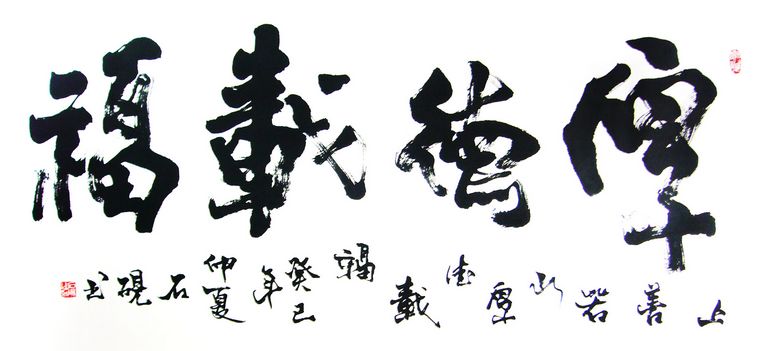 厚德載福
上善若水厚德載福癸巳年仲夏石硯书